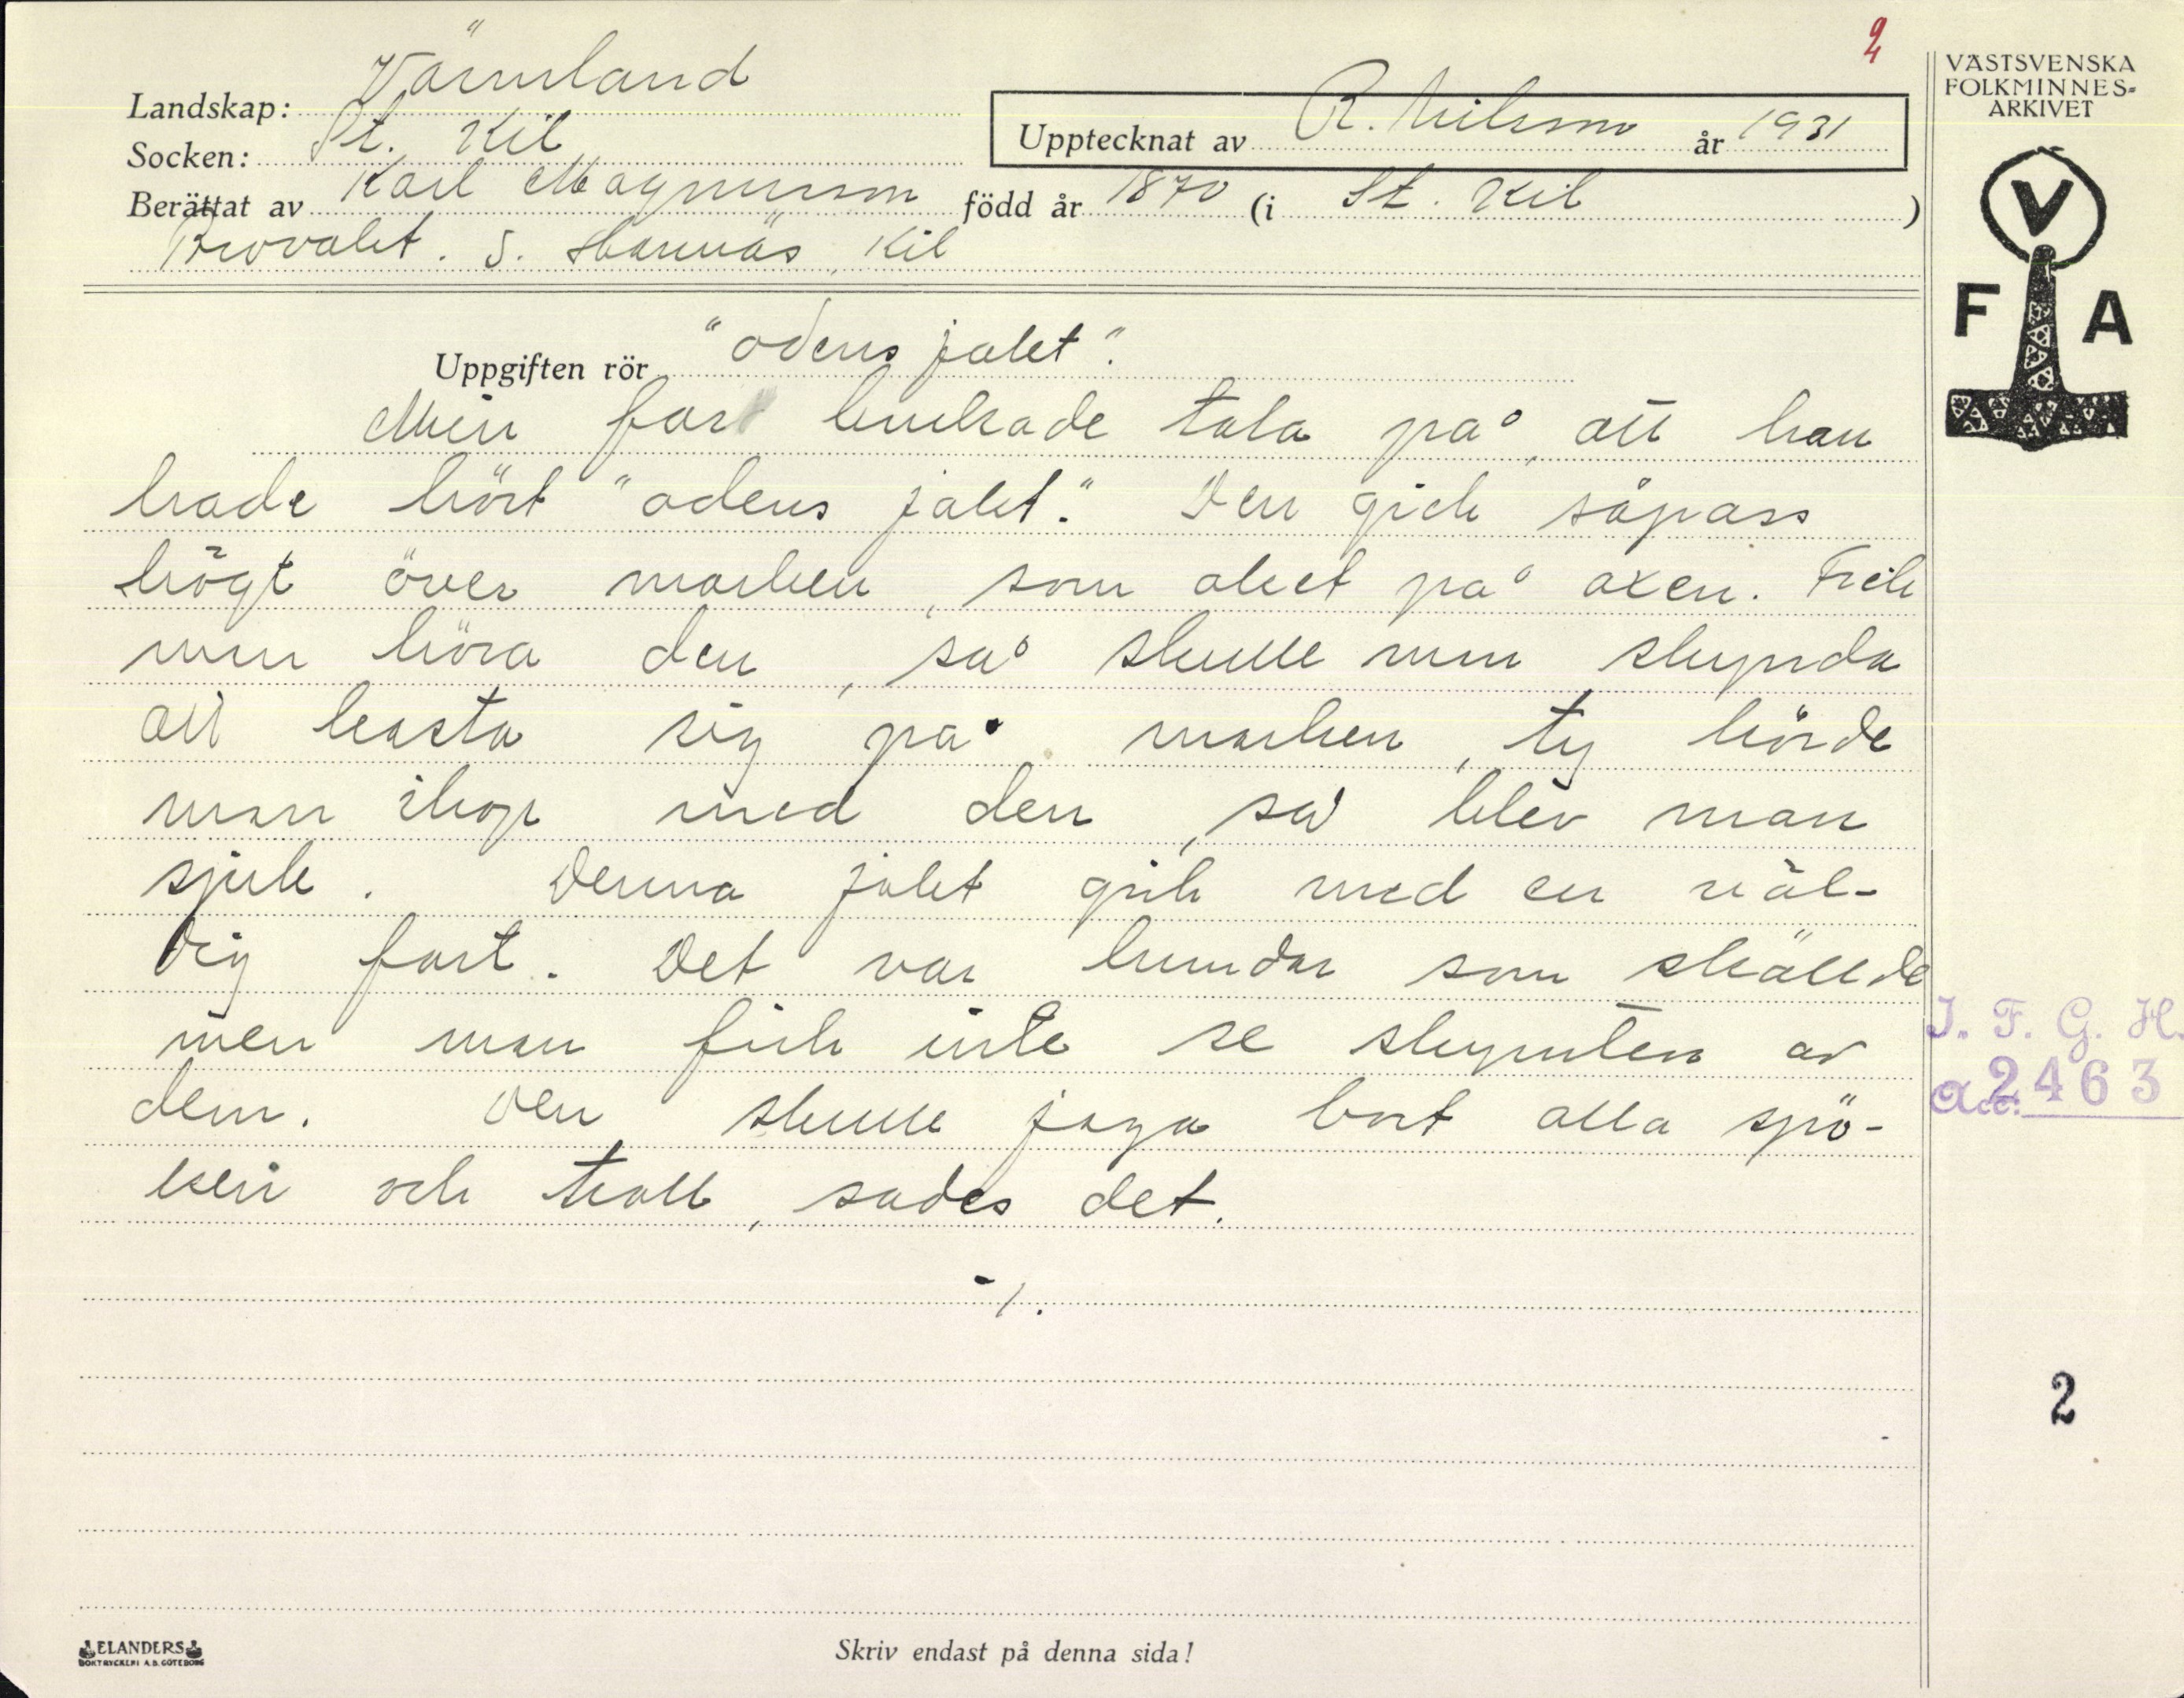 2
VÄSTSVENSKA
FOLKMINNES-
ARKIVET
Landskap: Värmland
Socken: St. Kil
Upptecknat av R. Nilsson år 1931
Berättat av Karl Magnusson född år 1870 (i St. Kil)
S. Hannäs, Kil
V
F A
Uppgiften rör "odens jakt".
Min far brukade tala på, att han
hade hört "odens jakt." Den gick såpass
högt över marken, som oket på oxen. Fick
mm höra den, så skulle mm skynda
att kasta sig på marken, ty hörde
man ihop med den, så blev man
sjuk. Denna jakt gick med en väl-
dig fart. Det var hundar som skällde
men man fick inte se skymten av
dem. Den skulle jaga bort alla spö-
ken och troll, sades det.
-/.
I. F. G. H.
Acc. 2463
2
ELANDERS
BOKTRYCKERI A.B. GÖTEBORG
Skriv endast på denna sida!